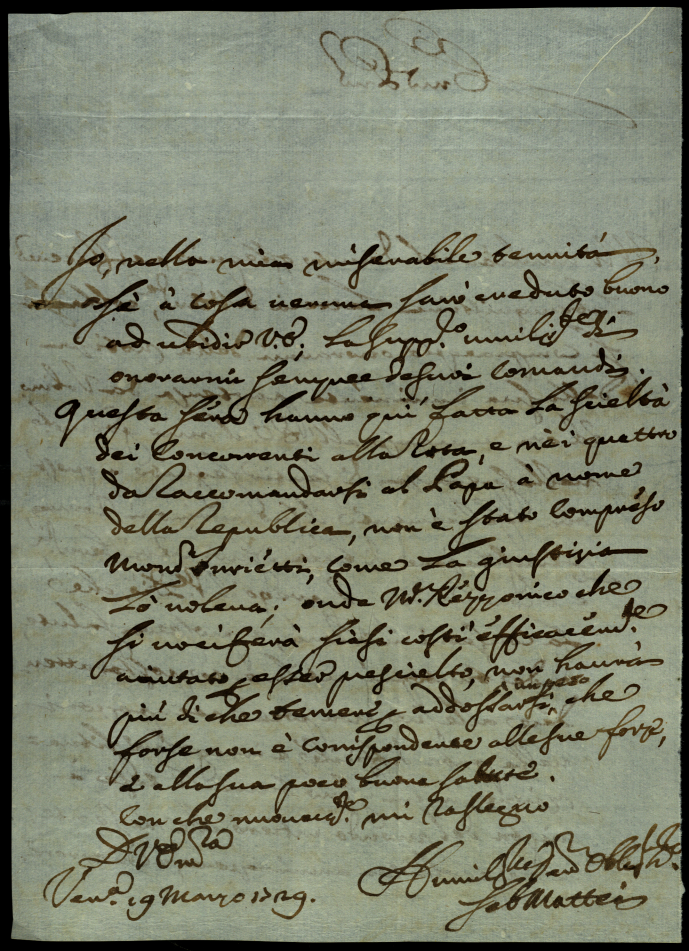 Io, nella mia miserabile tenuità,
se à cosa veruna sarò creduto buono
ad ubidir V.E; la supp.co umilis.te di
onorarmi sempre de suoi Comandi.
Questa sera hanno qui fatta la scielta
dei Concorrenti alla Rota, e nei quattro
da Raccomandarsi al Papa à nome
della Republica, non è stato Compreso
Mons.r, come la giustizia
Lo voleva; onde M.r Rezzonico che
si vociferà siasi costì efficacem.te
aiutato p esser prescielto, non haurà
più di che temere p addossarsi un peso, che
forse non è corrispondente alle sue forze,
e alla sua poco buona salute.
Con che nuovam.te mi rassegno
D V.E.
Ven.a 19 Marzo 1729.
Seb Mattei